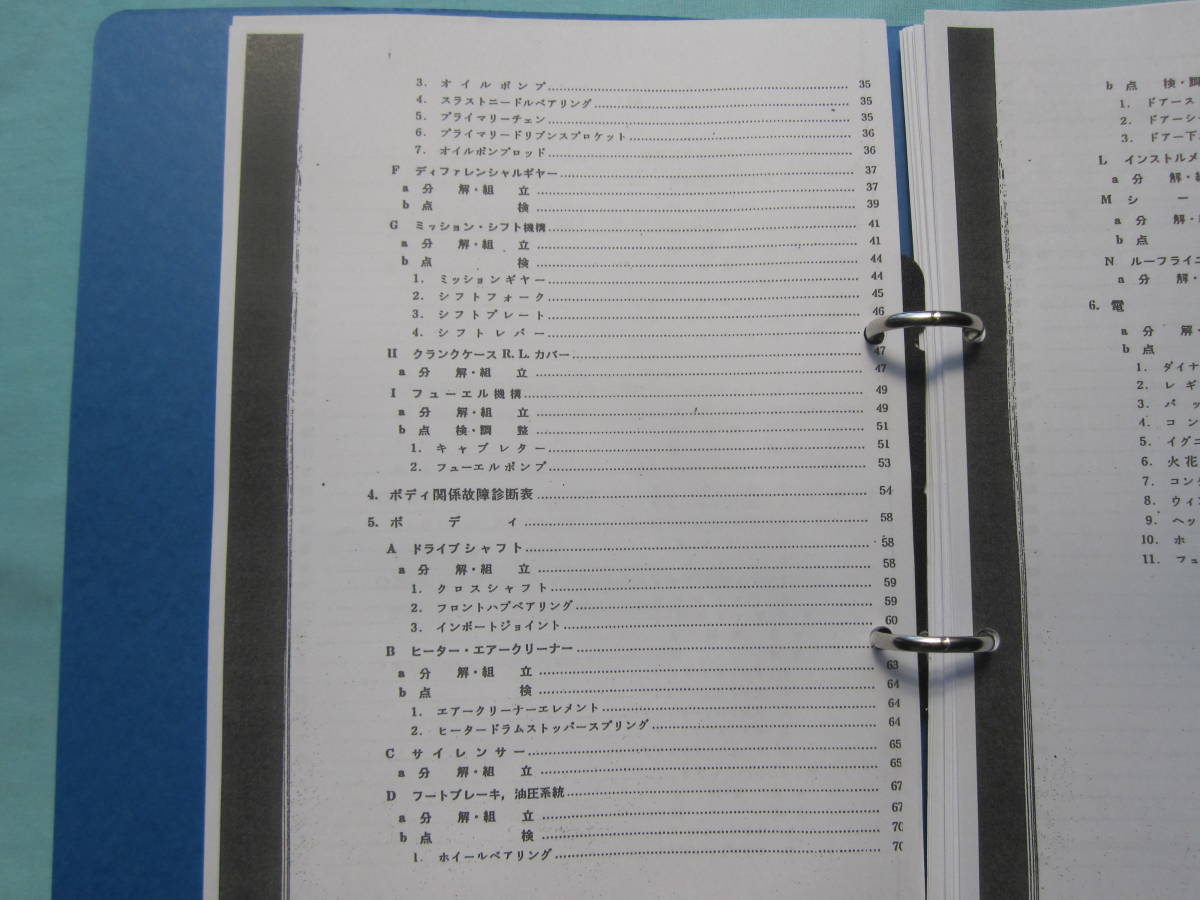 3. オイルポンプ 35
4. スラストニードルベアリング 35
5. プライマリーチェン 35
6. プライマリードリブンスプロケット 36
7. オイルポンプロッド 36
F ディファレンシャルギヤー 37
a 分解・組立 37
b 点検 39
G ミッション・シフト機構 41
a 分解・組立 41
b 点検 44
1. ミッションギヤー 44
2. シフトフォーク 45
3. シフトプレート 46
4. シフトレバー
H クランクケース R.L.カバー 47
a 分解・組立 47
I フューエル機構 49
a 分解・組立 49
b 点検・調整 51
1. キャブレター 51
2. フューエルポンプ 53
4. ボディ関係故障診断表 54
5. ボディ 58
A ドライブシャフト 58
a 分解・組立 58
1. クロスシャフト 59
2. フロントハブベアリング 59
3. インボートジョイント 60
B ヒーター・エアークリーナー
a 分解・組立 63
b 点検 64
1. エアークリーナーエレメント 64
2. ヒータードラムストッパースプリング 64
C サイレンサー 65
a 分解・組立 65
D フートブレーキ，油圧系統 67
a 分解・組立 67
b 点検 70
1. ホイールベアリング 70
b 点検・調
1. ドアース
2. ドアーシ
3. ドアー下
L インストルメ
a 分解・組
M シー
a 分解・
b 点
N ルーフライニ
a 分解・
6. 電
a 分解・
b 点
1. ダイナ
2. レギ
3. バッ
4. コン
5. イグニ
6. 火花
7. コンデ
8. ウィン
9. ヘッ
10. ホ
11. フュ